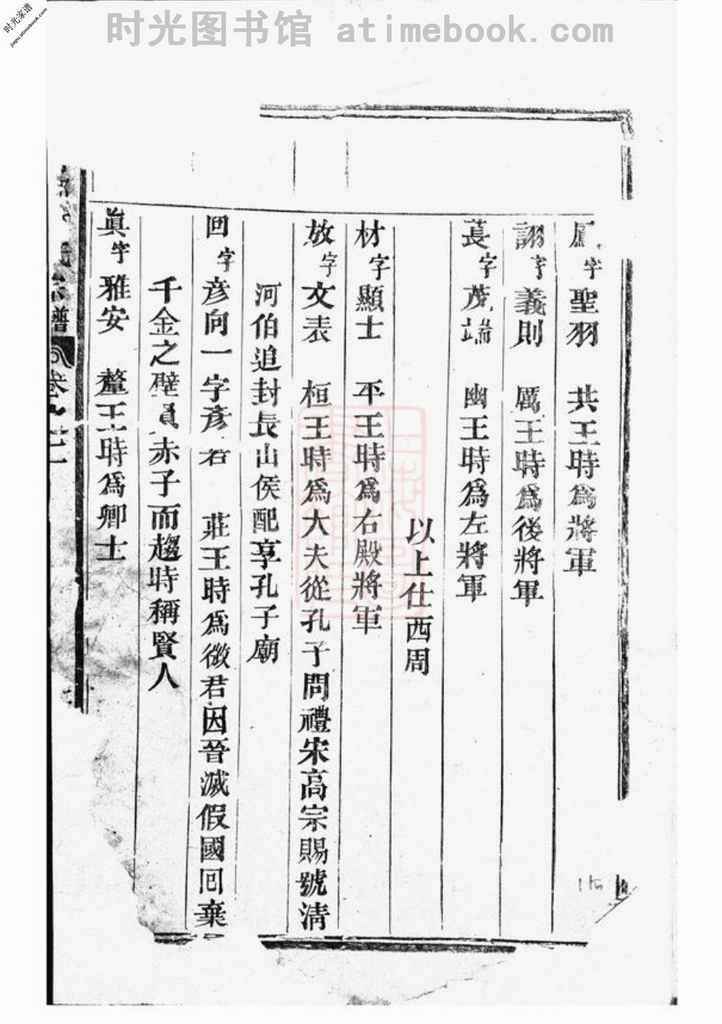 时光图书馆 atimebook.com
时光家谱
jiapu.atimebook.com
字聖羽 共王時爲將軍
詡字義則 厲王時爲後將軍
萇字茂端 幽王時爲左將軍
以上仕西周
材字顯士 平王時爲右殿將軍
放字文表 桓王時爲大夫從孔子問禮宋高宗賜號清
河伯追封長山侯配享孔子廟
回字彥向一字彥君 莊王時爲徵君因晉滅假國回棄
千金之璧負赤子而趨時稱賢人
眞字雅安 釐王時爲卿士
譜
卷